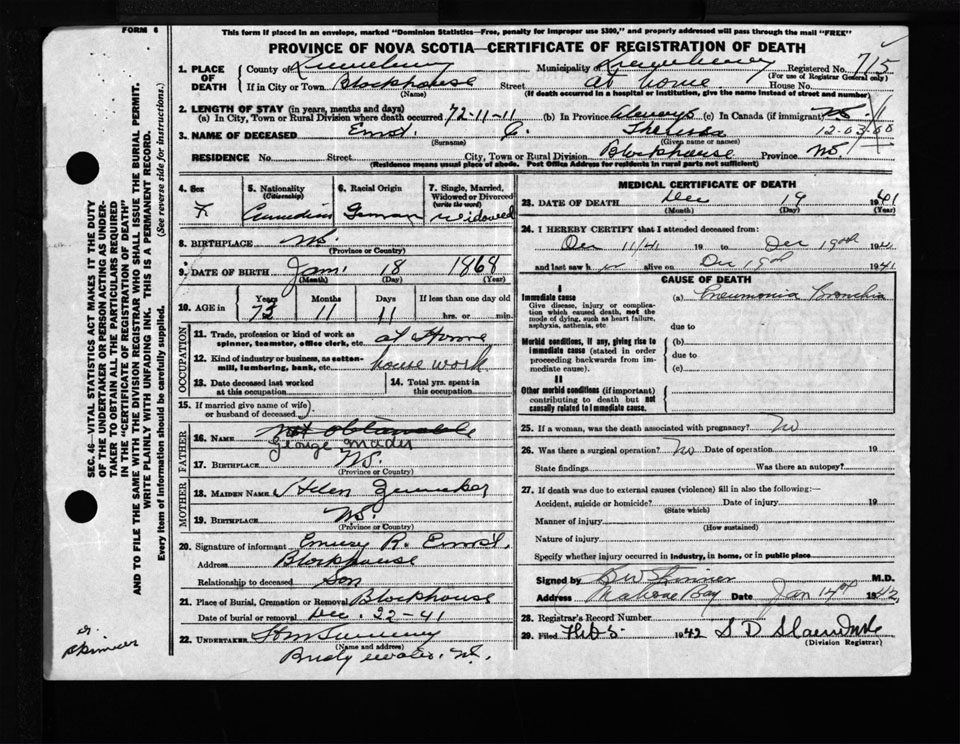 This form if placed in an envelope, marked "Dominion Statistics—Free, penalty for improper use $300," and properly addressed will pass through the mail "FREE"
FORM 6
PROVINCE OF NOVA SCOTIA—CERTIFICATE OF REGISTRATION OF DEATH
1. PLACE OF DEATH County of Lunenburg Municipality of Lunenburg Registered No. 715
(For use of Registrar General only)
If in City or Town Blockhouse Street At home House No.
(Name) (If death occurred in a hospital or institution, give the name instead of street and number)
2. LENGTH OF STAY (in years, months and days)
(a) In City, Town or Rural Division where death occurred 72-11-11 (b) In Province Always (c) In Canada (if immigrant)
3. NAME OF DECEASED Ernst C. Theressa
(Surname) (Given name or names)
RESIDENCE No. Street City, Town or Rural Division Blockhouse Province NS.
(Residence means usual place of abode. Post Office Address for residents in rural parts not sufficient)
4. Sex F
5. Nationality (Citizenship) Canadian
6. Racial Origin German
7. Single, Married, Widowed or Divorced (write the word) widowed
8. BIRTHPLACE NS.
(Province or Country)
9. DATE OF BIRTH Jan. 18 1868
(Month) (Day) (Year)
10. AGE in Years 73 Months 11 Days 11 If less than one day old
hrs. or min.
OCCUPATION
11. Trade, profession or kind of work as spinner, teamster, office clerk, etc. at Home
12. Kind of industry or business, as cotton-mill, lumbering, bank, etc. house work
13. Date deceased last worked at this occupation
14. Total yrs. spent in this occupation
15. If married give name of wife or husband of deceased
FATHER
Not Obtainable
16. NAME George Mader
17. BIRTHPLACE NS.
(Province or Country)
MOTHER
18. MAIDEN NAME Helen
19. BIRTHPLACE NS.
(Province or Country)
20. Signature of informant Emery R. Ernst.
Address Blockhouse
Relationship to deceased Son
21. Place of Burial, Cremation or Removal Blockhouse
Date of burial or removal Dec. 22-41
22. UNDERTAKER
(Name and address)
MEDICAL CERTIFICATE OF DEATH
23. DATE OF DEATH Dec 19 1941
(Month) (Day) (Year)
24. I HEREBY CERTIFY that I attended deceased from:
Dec 11/41 19 to Dec 19th 1941
and last saw h er alive on Dec 19th 1941
CAUSE OF DEATH
I
Immediate cause
Give disease, injury or complication which caused death, not the mode of dying, such as heart failure, asphyxia, asthenia, etc.
(a) Pneumonia Bronchia
due to
Morbid conditions, if any, giving rise to immediate cause (stated in order proceeding backwards from immediate cause).
(b)
due to
(c)
II
Other morbid conditions (if important) contributing to death but not causally related to immediate cause.
25. If a woman, was the death associated with pregnancy? No
26. Was there a surgical operation? No Date of operation 19
State findings Was there an autopsy?
27. If death was due to external causes (violence) fill in also the following:—
Accident, suicide or homicide? Date of injury 19
(State which)
Manner of injury
(How sustained)
Nature of injury
Specify whether injury occurred in industry, in home, or in public place
Signed by Skinner M.D.
Address Mahone Bay Date Jan 14th 1942
28. Registrar's Record Number
29. Filed Feb 5 1942 S D
(Division Registrar)
SEC. 46—VITAL STATISTICS ACT MAKES IT THE DUTY
OF THE UNDERTAKER OR PERSON ACTING AS UNDER-
TAKER TO OBTAIN ALL THE PARTICULARS REQUIRED
IN THE "CERTIFICATE OF REGISTRATION OF DEATH"
AND TO FILE THE SAME WITH THE DIVISION REGISTRAR WHO SHALL ISSUE THE BURIAL PERMIT.
WRITE PLAINLY WITH UNFADING INK. THIS IS A PERMANENT RECORD.
Every item of information should be carefully supplied. (See reverse side for instructions.)
Skinner